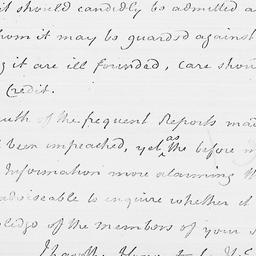 it should candidly be admitted a
whom it may be guarded against
g it are ill founded, care shou
Credit.
uth of the frequent Reports mad
been impeached, yet as the before m
Information more alarming th
adviseable to enquire whether it
ledge of the members of your
I have the Honor to be